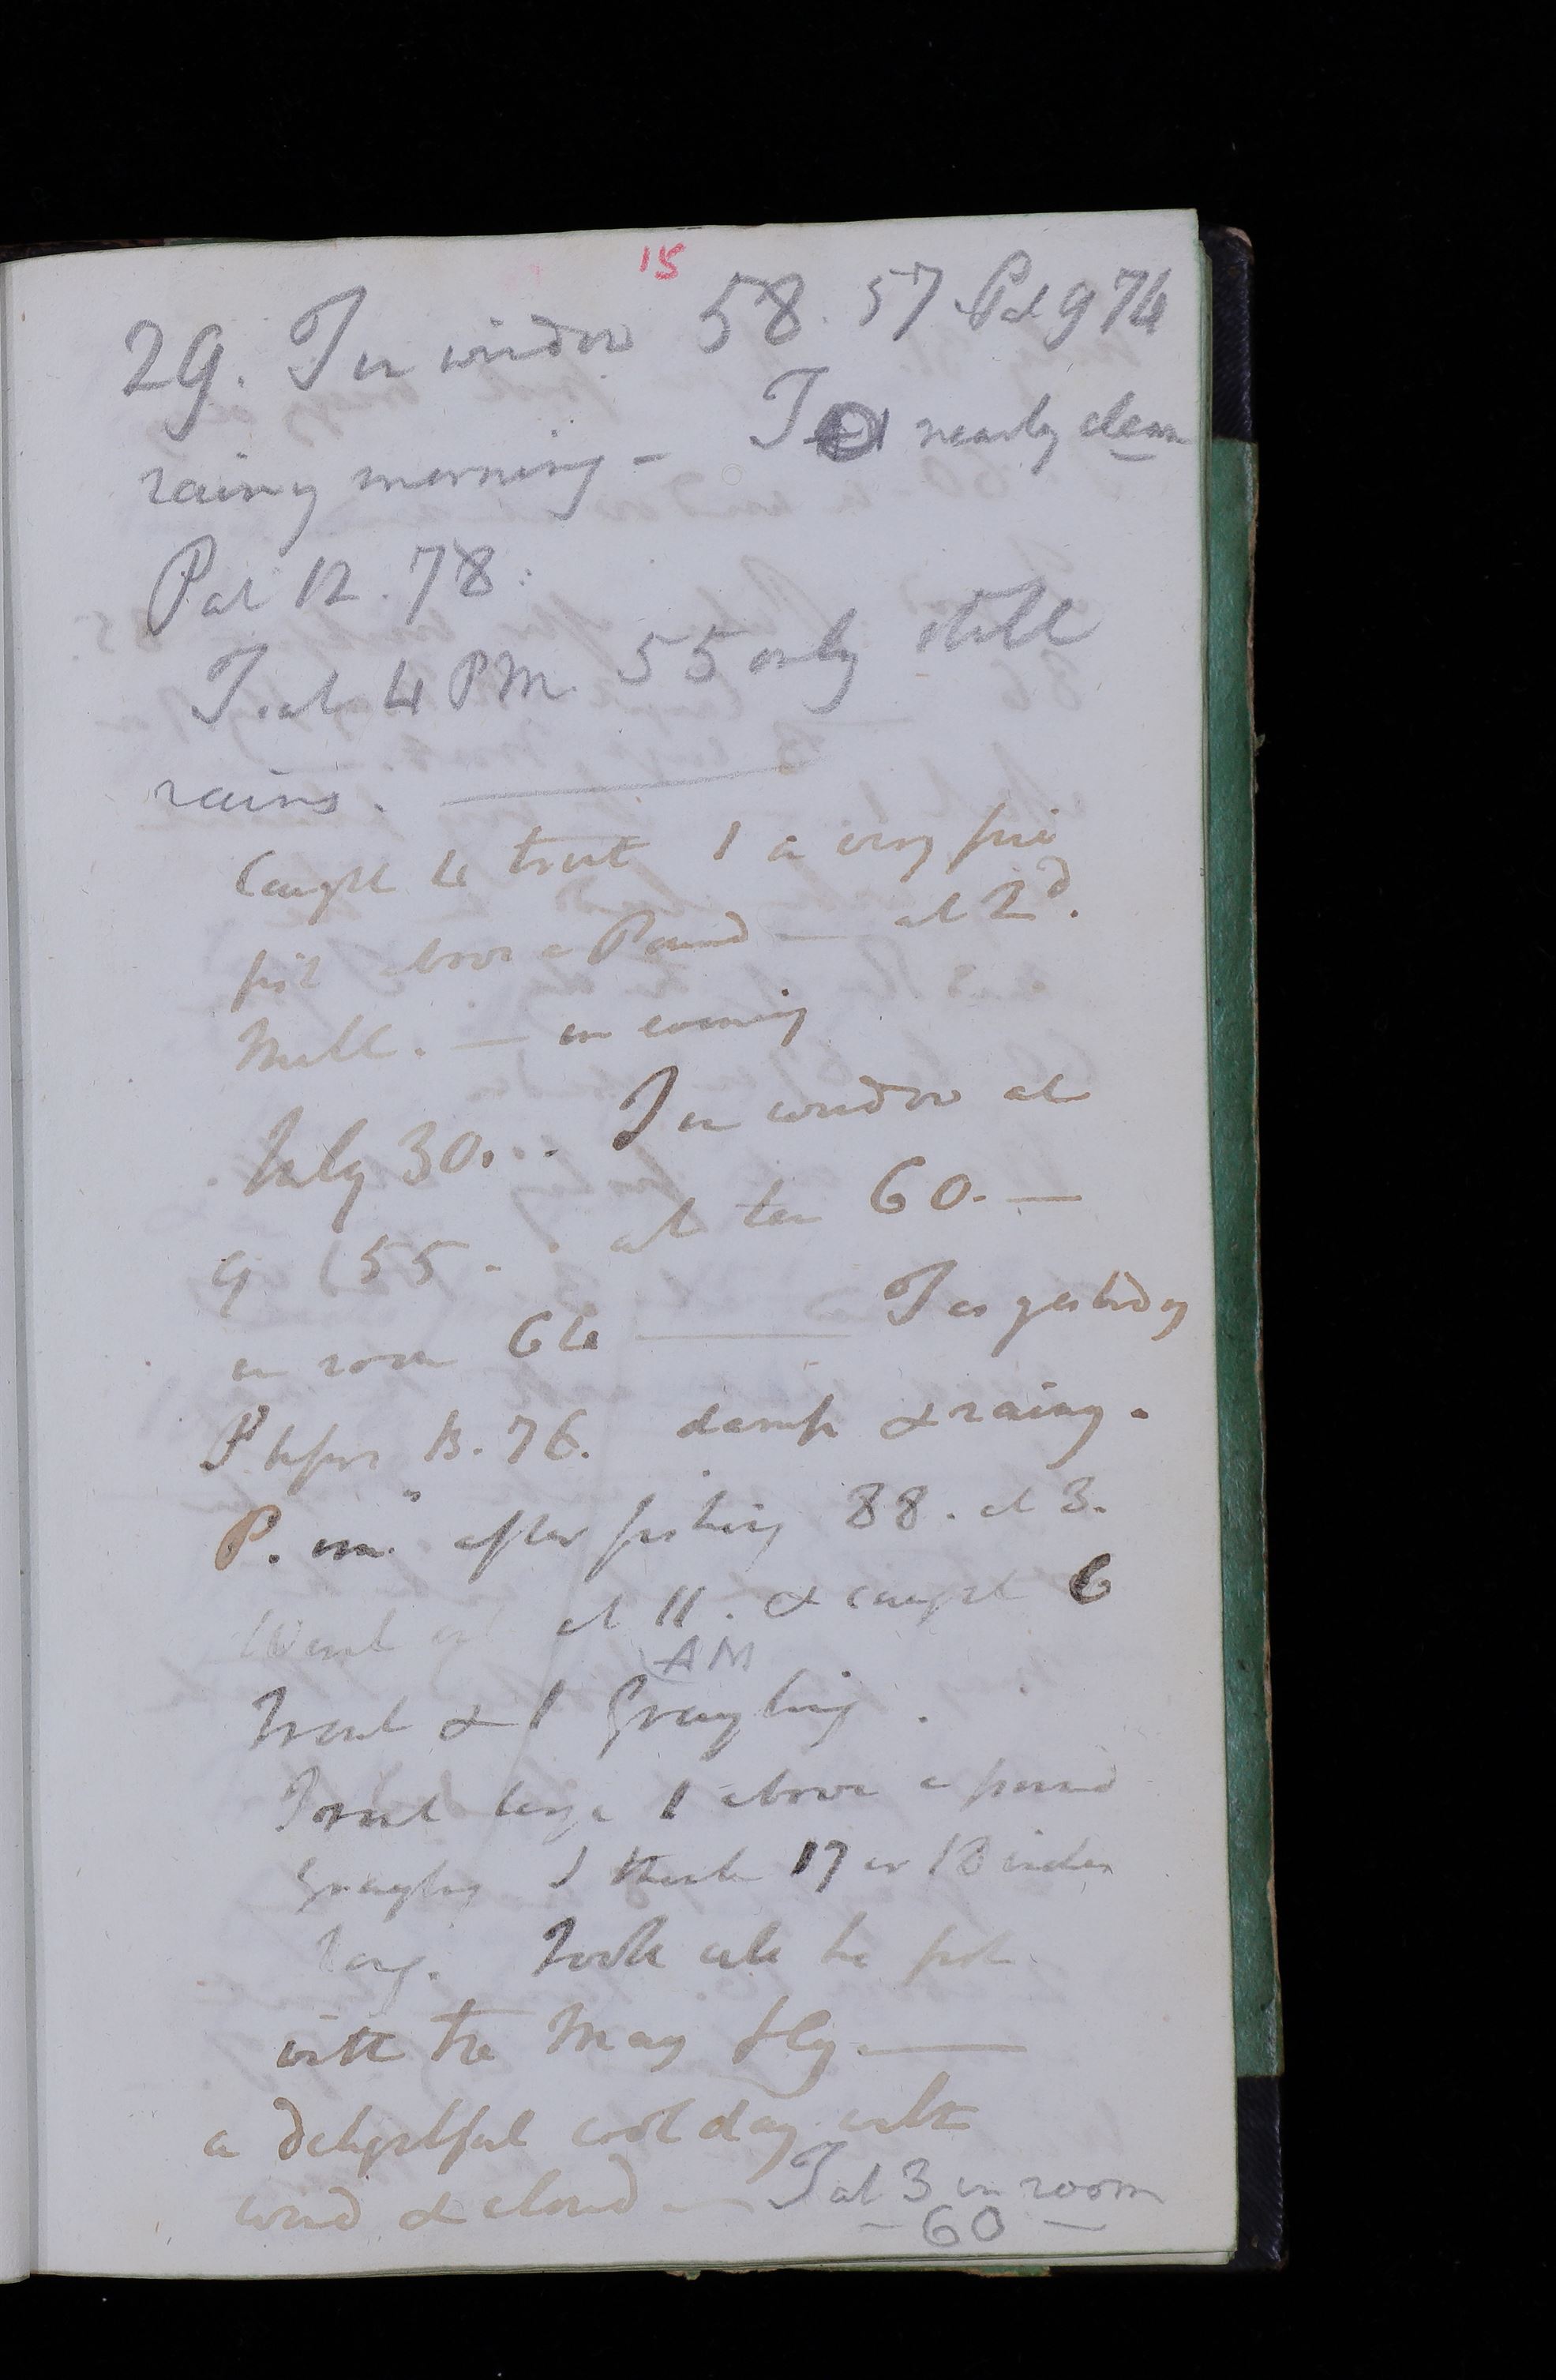 15
29. T in window 58. 57 P at 9 74
rainy morning – T nearly clean
P at 12. 78.
T. at 4 PM. 55 only still
rains.
Caught 4 trout 1 a very fine
fish above a Pound — at 2d.
Mill. — in evening
July 30... T in window at
9 (55. . at ten 60. —
in room 64 — T as yesterday
P before B. 76. damp & rainy.
P. after fishing 88. at 3.
Went out at 11. & caught 6
AM
Trout & 1 Grayling.
Trout large 1 above a pound
Grayling I think 17 or 18 inches
long. Took all the fish
with the May fly —
a delightful cool day with
wind & cloud — T at 3 in room
– 60 –